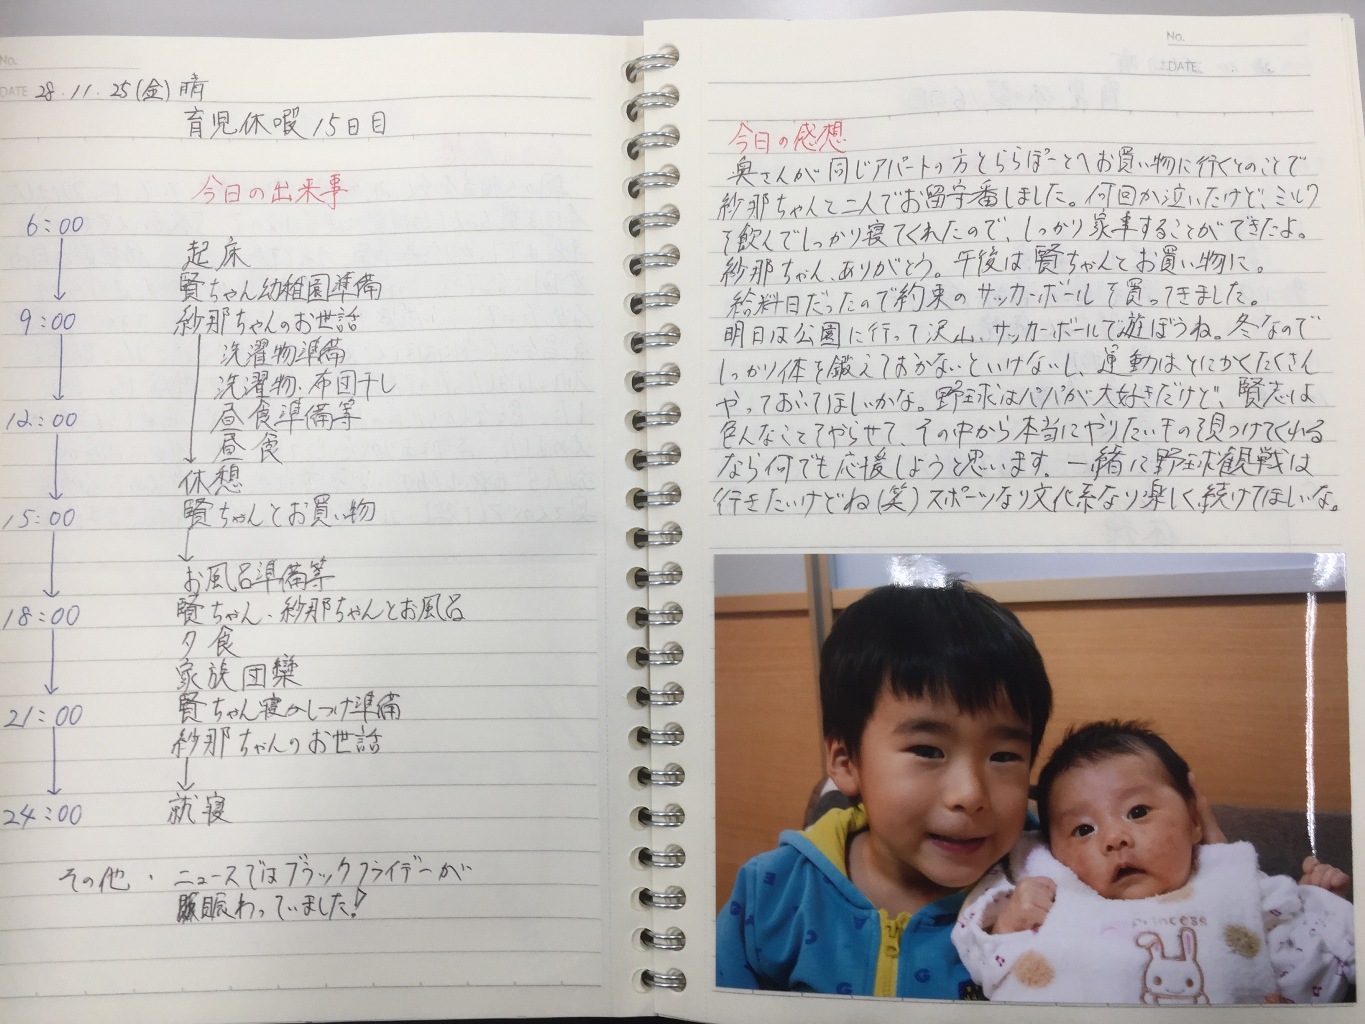 No.
DATE 28.11.25(金) 晴
育児休暇15日目
今日の出来事
6:00
起床
賢ちゃん幼稚園準備
9:00 紗那ちゃんのお世話
洗濯物準備
洗濯物・布団干し
12:00 昼食準備等
昼食
休想
15:00 賢ちゃんとお買い物
お風呂準備等
18:00 賢ちゃん・紗那ちゃんとお風呂
夕食
家族団欒
21:00 賢ちゃん寝かしつけ準備
紗那ちゃんのお世話
24:00 就寝
その他・ニュースではブラックフライデーが
賑わっていました!
No.
DATE
今日の感想
奥さんが同じアパートの方とららぽーとへお買い物に行くとのことで
紗那ちゃんと二人でお留守番しました。何回か泣いたけど、ミルク
を飲んでしっかり寝てくれたので、しっかり家事することができたよ。
紗那ちゃん、ありがとう。午後は賢ちゃんとお買い物に。
給料日だったので約束のサッカーボールを買ってきました。
明日は公園に行って沢山、サッカーボールで遊ぼうね。冬なので
しっかり体を鍛えておかないといけないし、運動はとにかくたくさん
やっておいてほしいかな。野球はパパが大好きだけど、賢志は
色んなことをやらせて、その中から本当にやりたいもの見つけてくれる
なら何でも応援しようと思います。一緒に野球観戦は
行きたいけどね(笑)スポーツなり文化系なり楽しく続けてほしいな。
Princess